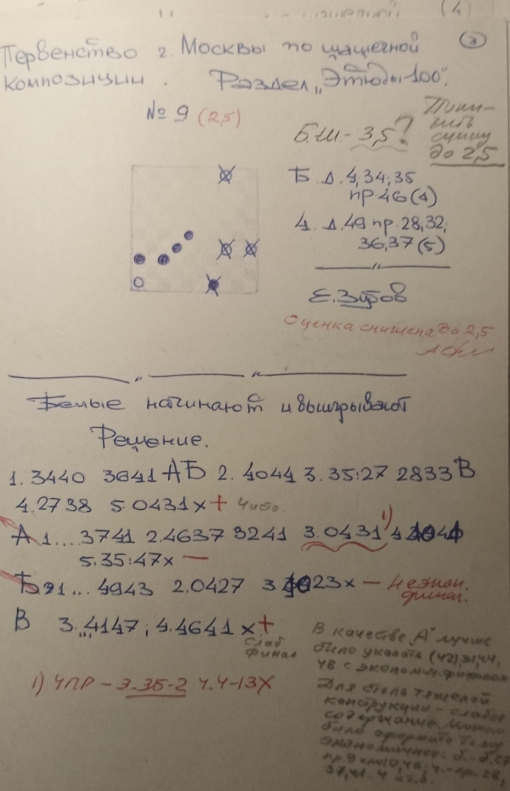 (4)
Первенство г. Москвы по шашечной
композиции. Раздел „Этюды-100".
№ 9 (2,5)
Б.Ш. - 3,5?
Пони-
зить
сумму
до 2,5
Б. Д. 4,34,35
пр.46 (4)
Ч. Д.49 пр. 28,32,
36,37 (5)
Е. Зубов
Оценка снижена до 2,5
Белые начинают и выигрывают
Решение.
1.3440 3641 АБ 2.4044 3.35:27 2833 В
4.2738 5.0431x + Чисто
А 1... 3741 2.4637 3241 3.0431 1)
5.35:47x —
Б 1... 4943 2.0427 3. 23x — Неэкон.
финал.
В 3...4147; 4.4641x +
слаб
финал
1) ЧПР – Э.35-2 Ч.Ч-13X
В качестве „А" лучше
было указать (42),31,44,
48 с экономич. финалом
Для столь тяжелой
конструкции – слабое
содержание. Можно
было оформить тему
экономичнее: